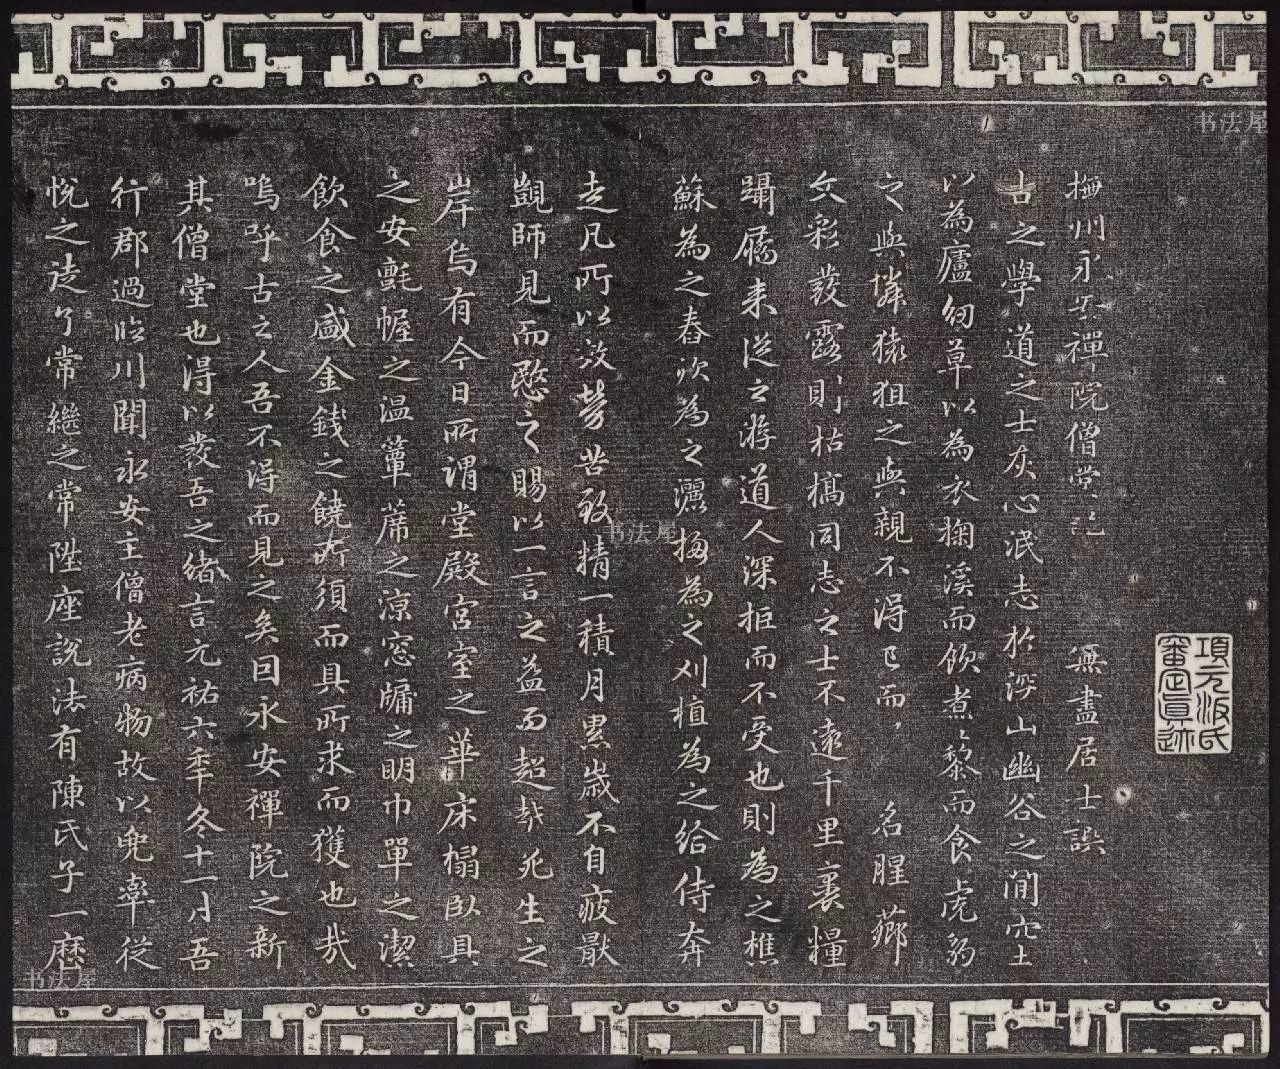 撫州永安禪院僧堂記
無盡居士譔
古之學道之士灰心泯志於深山幽谷之間穴土
以為廬紉草以為衣掬溪而飲煮藜而食虎豹
之與隣猿狙之與親不得已而名腥薌
文彩發露則枯槁同志之士不遠千里裹糧
躡屩来從之游道人深拒而不受也則為之樵
蘇為之舂炊為之灑掃為之刈植為之給侍奔
走凡所以效勞苦致精一積月累歲不自疲厭
覬師見而愍之賜以一言之益而超越死生之
岸烏有今日所謂堂殿宮室之華床榻臥具
之安氈幄之溫簟蓆之涼窓牖之明巾單之潔
飲食之盛金錢之饒所須而具所求而獲也哉
嗚呼古之人吾不得而見之矣因永安禪院之新
其僧堂也得以發吾之緒言元祐六年冬十一月吾
行郡過臨川聞永安主僧老病物故以兜率從
悅之徒了常繼之常陞座說法有陳氏子一歷
項元汴氏
審定真迹
书法屋
书法屋
书法屋